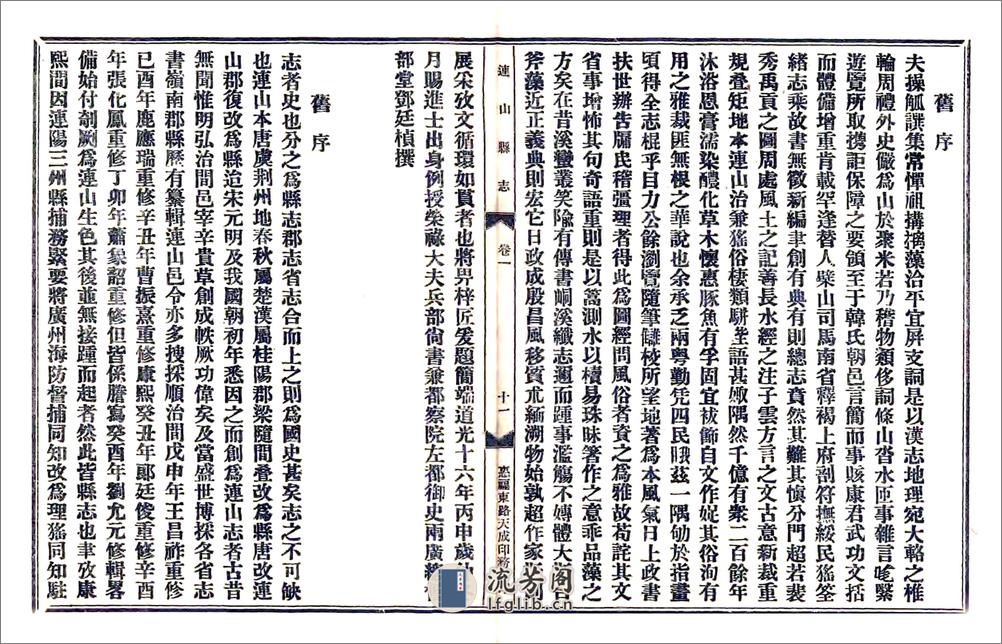 舊序
夫操觚譔集常憚祖搆摛藻洽平宜屏支詞是以漢志地理宛大輅之椎
輪周禮外史儼為山於聚米若乃稽物類侈詞條山沓水匝事雜言尨緊
遊覽所取攜詎保障之要領至于韓氏朝邑言簡而事賅康君武功文括
而體備增重肯載罕逢替人檗山司馬南省釋褐上府剖符撫綏民猺筌
緒志乘故書無徵新編聿創有典有則總志賁然其難其慎分門超若裴
秀禹貢之圖周處風土之記善長水經之注子雲方言之文古意新裁重
規疊矩地本連山治兼猺俗棲類駢語甚娵隅然千億有衆二百餘年
沐浴恩膏濡染醲化草木懷惠豚魚有孚固宜袚飾自文作娖其俗洵有
用之雅裁匪無根之華說也余承乏兩粵勤凭四民哦茲一隅劬於指畫
頃得全志棍乎目力公餘瀏覽隨筆所望地著為本風氣日上政書
扶世辦告扇民稽疆理者得此為圖經問風俗者資之為雅故苟詫其文
省事增怖其句奇語重則是以蒿測水以櫝易珠昧箸作之意乖品藻之
方矣在昔溪蠻叢笑隃有傳書峒溪纖志邇而踵事濫觴不嫥體大
斧藻近正義典則宏它日政成殷昌風移質尤緬溯物始孰超作家
連山縣志
卷一
十一
惠福東路天成印務
展采攷文循環如貫者也將畀梓匠爰題簡端道光十六年丙申歲
月賜進士出身例授榮祿大夫兵部尙書兼都察院右都御史兩廣總
部堂鄧廷楨撰
舊序
志者史也分之為縣志郡志省志合而上之則為國史甚矣志之不可缺
也連山本唐虞荆州地春秋屬楚漢屬桂陽郡梁隨間叠改為縣唐改連
山郡復改為縣迨宋元明及我國朝初年悉因之而創為連山志者古昔
無聞惟明弘治間邑宰辛貴草創成帙厥功偉矣及當盛世博採各省志
書嶺南郡縣厯有纂輯連山邑令亦多搜採順治間戊申年王昌祚重修
已酉年鹿應瑞重修辛丑年曹振熹重修康熙癸丑年郞廷俊重修辛酉
年張化鳳重修丁卯年蕭象韶重修但皆係謄寫癸酉年劉允元修輯畧
備始付剞劂為連山生色其後並無接踵而起者然此皆縣志也聿攷康
熙間因連陽三州縣捕務緊要將廣州海防督捕同知改為理猺同知駐
流芳阁
lfglib.cf